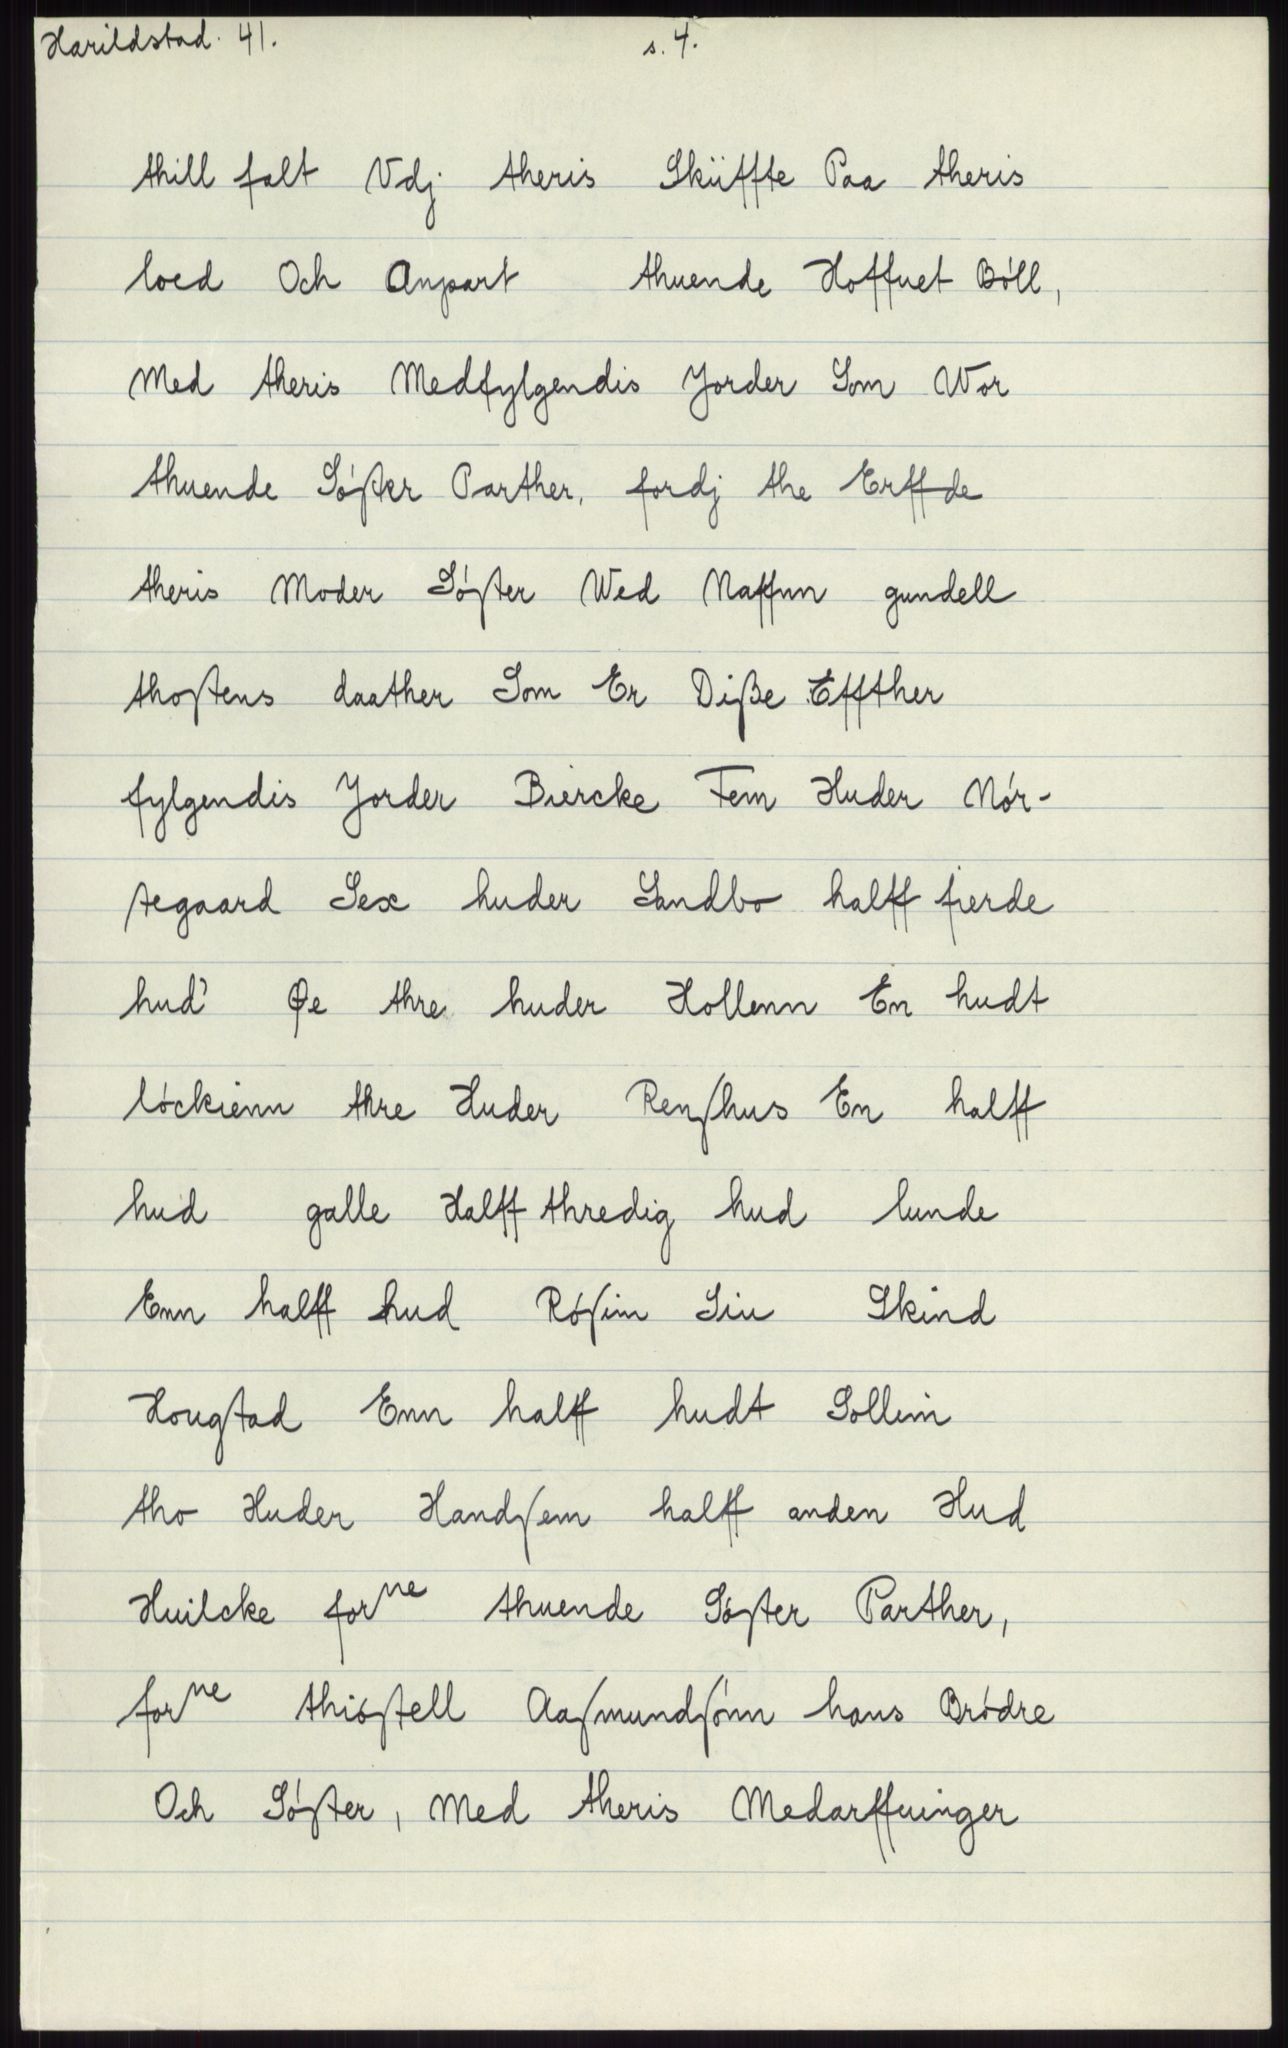 Harildstad. 41. s. 4.
thill falt Vdj theris Skiiffte Paa theris
loed Och Anpart thuende Hoffuet Bóll,
Med theris Medfylgendis Jorder Som Wor
thuende Sóster Parther, fordj the Erffde
theris Moder Sóster Wed Naffnn gundell
thostens daather Som Er Disse Effther
fylgendis Jorder Biercke Fem Huder Nór-
stegaard Sex huder Sandbo halff fierde
hud' Øe thre huder Hollenn En hudt
lóckienn thre Huder Renshus En halff
hud galle Halff thredig hud lunde
Enn halff hud Rósim Siu Skind
Hougstad Enn halff hudt Sollim
tho Huder Handsem halff anden Hud
Huilcke forne thuende Sóster Parther,
forne thióstell Aasmundsónn hans Bródre
Och Sóster, Med theris Medarffuinger